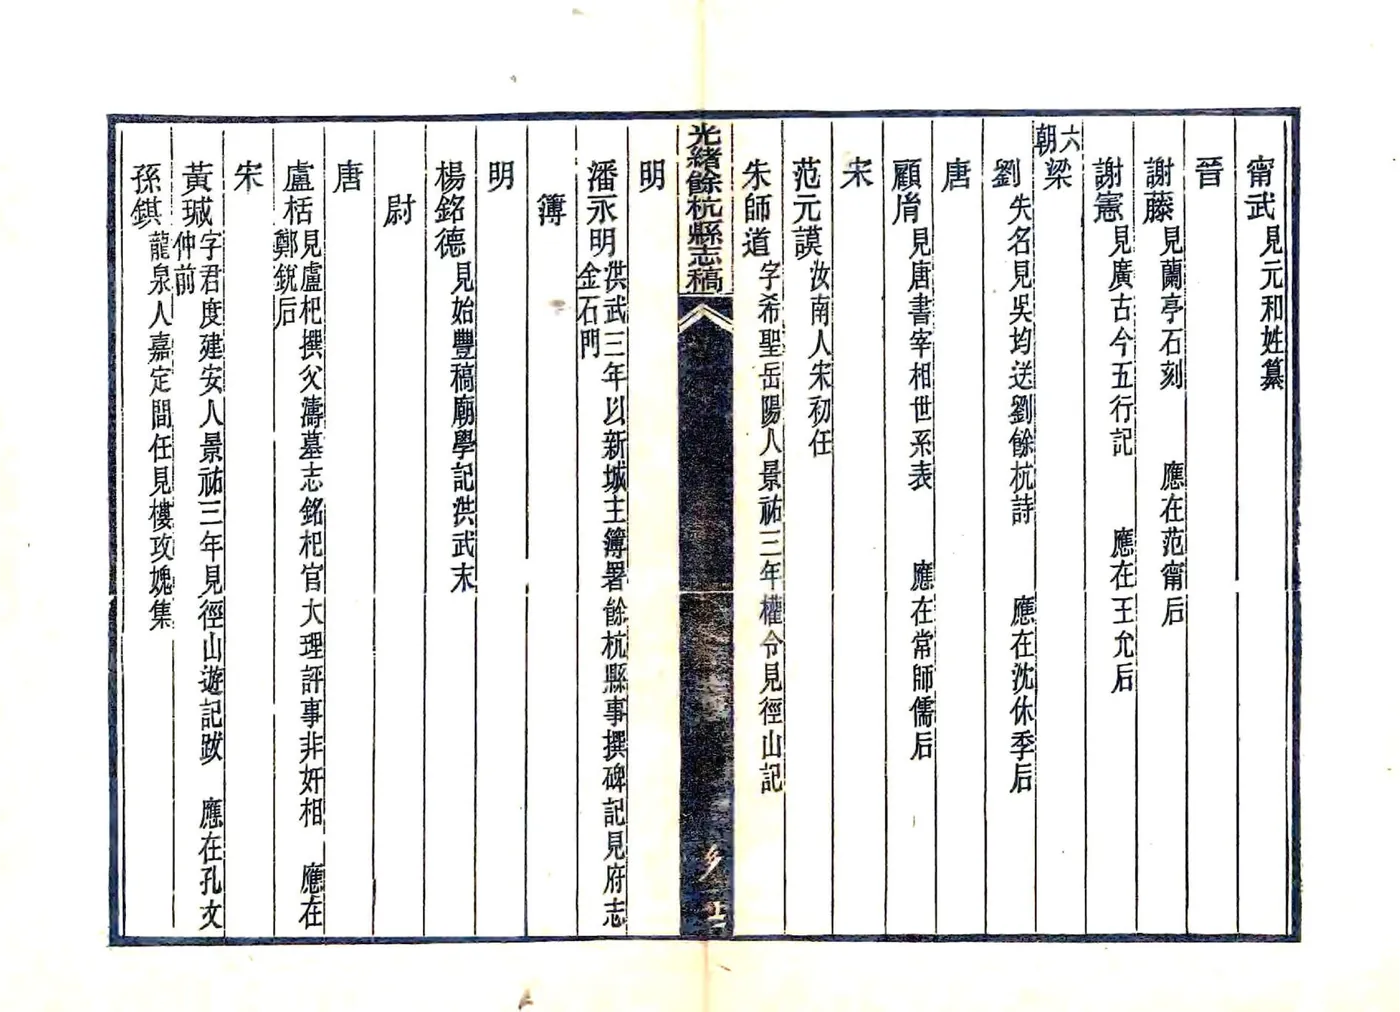 甯武見元和姓纂
晉
謝藤見蘭亭石刻　應在范甯后
謝憲見廣古今五行記　應在王允后
六朝梁
劉失名見吳均送劉餘杭詩　應在沈休季后
唐
顧㣧見唐書宰相世系表　應在常師儒后
宋
范元謨汝南人宋初任
朱師道字希聖岳陽人景祐三年權令見徑山記
光緒餘杭縣志稿
明
潘永明洪武三年以新城主簿署餘杭縣事撰碑記見府志
金石門
簿
明
楊銘德見始豐稿廟學記洪武末
尉
唐
盧栝見盧杞撰父濤墓志銘杞官大理評事非奸相　應在
鄭銳后
宋
黃瑊字君度建安人景祐三年見徑山遊記跋　應在孔文
仲前
孫錤龍泉人嘉定間任見樓攻媿集